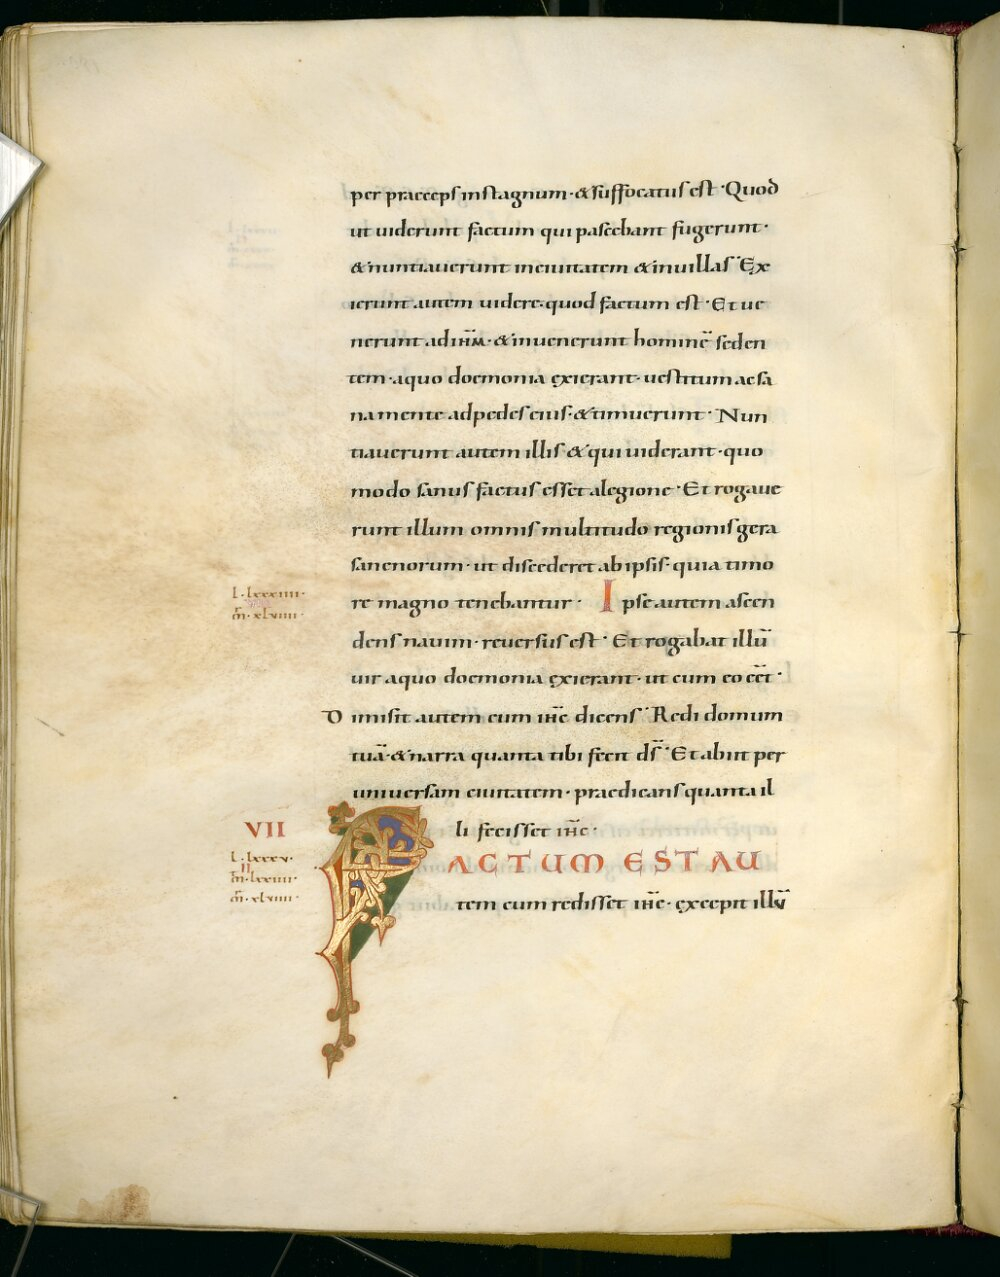 per praeceps instagnum · & suffocatus est · Quod
ut uiderunt factum qui pascebant fugerunt ·
& nuntiauerunt inciuitatem & inuillas · Ex
ierunt autem uidere · quod factum est · Et ue
nerunt ad ih̄m · & inuenerunt hominē seden
tem · aquo doemonia exierant · uestitum ac sa
na mente adpedes eius · & timuerunt · Nun
tiauerunt autem illis & qui uiderant · quo
modo sanus factus esset alegione · Et rogaue
runt illum omnis multitudo regionis gera
sanenorum · ut discederet ab ipsis · quia timo
L · lxxxiiii ·
re magno tenebantur · Ipse autem ascen
m̄ · xlviiii ·
dens nauim · reuersus est · Et rogabat illū
uir aquo doemonia exierant · ut cum eo eēt ·
Dimisit autem eum ih̄c dicens · Redi domum
tuā · & narra quanta tibi fecit d̄s · Et abiit per
uniuersam ciuitatem · praedicans quanta il
VII
li fecisset ih̄c ·
L · lxxxv ·
FACTUM EST AU
m̄ · lxxiiii ·
m̄ · xlviiii ·
tem cum redisset ih̄c · excepit illū